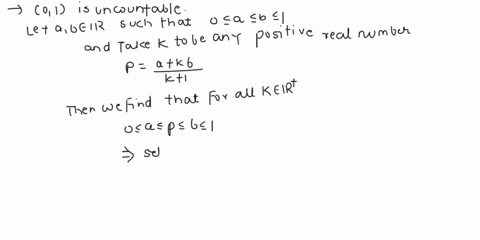 → (0,1) is uncountable.
Let a,b∈IR such that 0≤a≤b≤1
and Take K to be any positive real number
P = a+kb / k+1
Then we find that for all K∈IR⁺
0≤a≤p≤b≤1
⇒ sel